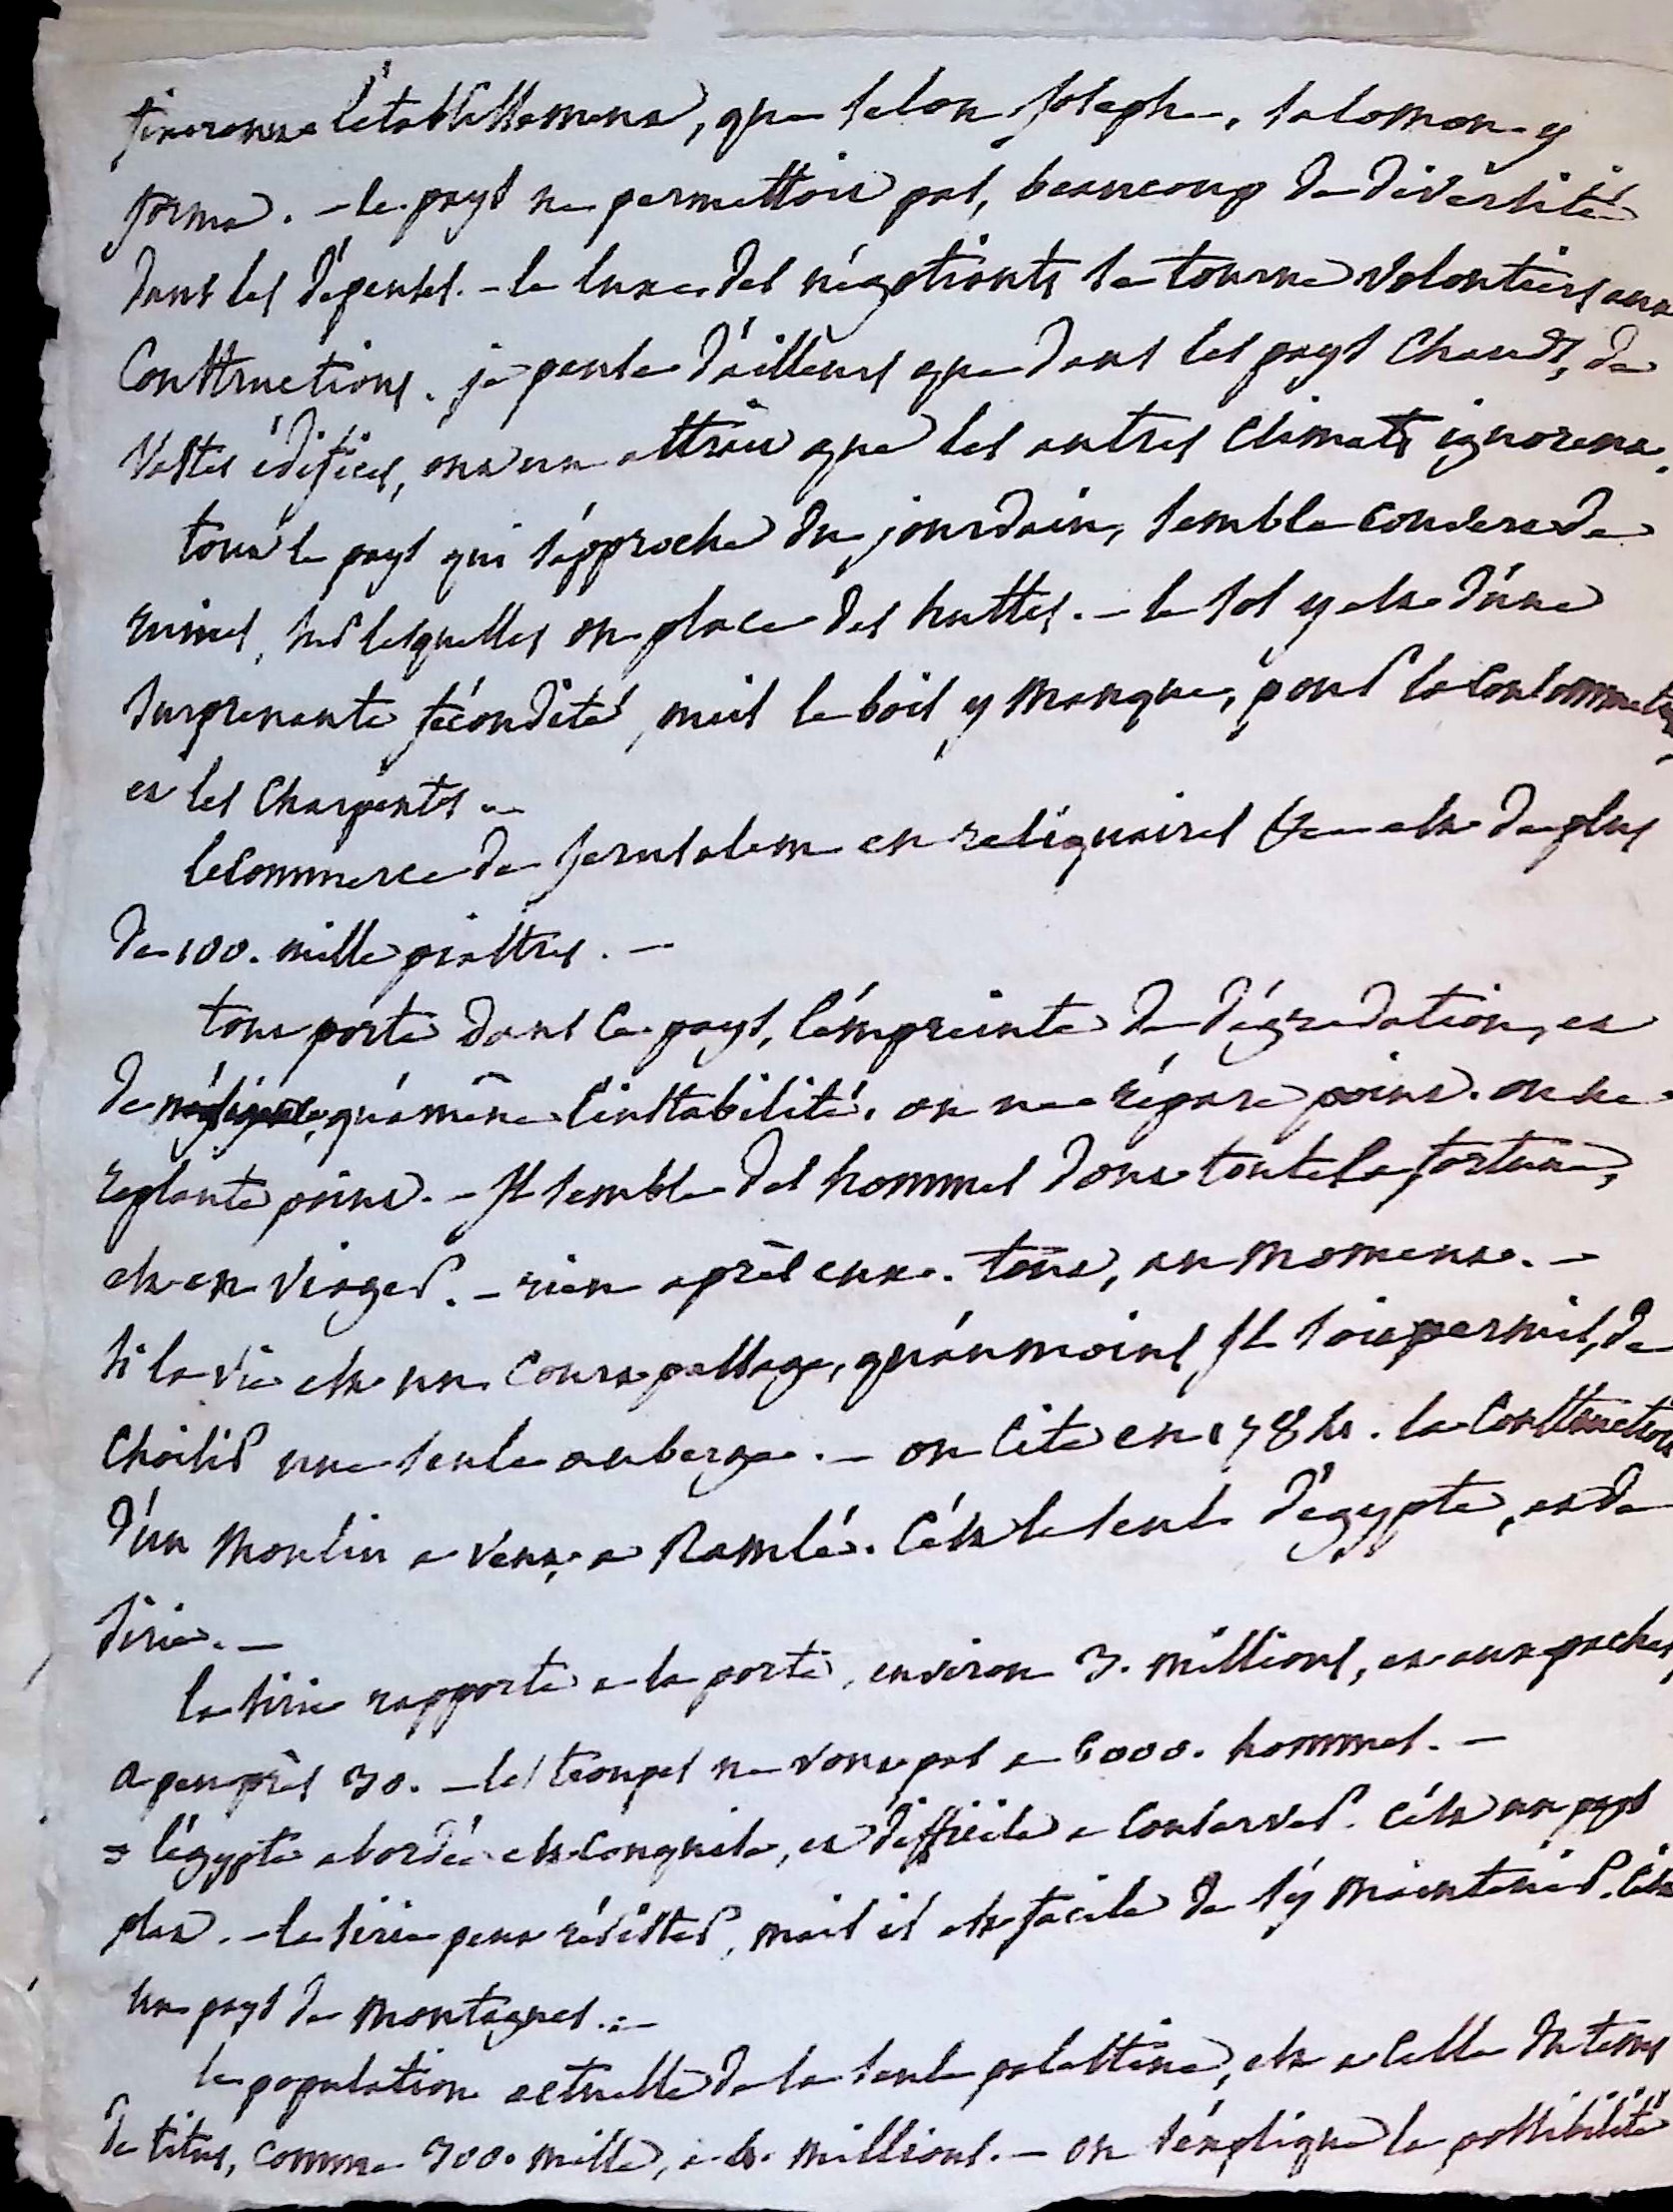 firent l'établissement, que selon Joseph, Salomon y
forma. - le pays ne permettoit pas, beaucoup de diversité
dans les dépenses. - le luxe des négotiants se tourne volontiers aux
Constructions. je pense d'ailleurs que dans les pays Chauds, de
Vastes édifices, ont un attrait que les autres Climats ignorent.
tout le pays qui s'approche du jourdain, semble couvert de
ruines, sur lesquelles on place des huttes. - le sol y est d'une
surprenante fécondité, mais le bois y manque, pour la Consommation
et les Charpentes -
le Commerce de Jerusalem en reliquaires &c est de plus
de 100. mille piastres. -
tout porte dans ce pays, l'empreinte de dégradation, et
de qu'amène l'instabilité. on ne répare point. on ne
replante point. - Il semble des hommes dont toute la fortune,
est en viager. - rien après eux. tout, au moment. -
si la vie est un Court passage, qu'au moins Il soit permis, de
Choisir une seule auberge. - on Cite en 1784. la Construction
d'un Moulin a vent, a Ramlé. C'est le seul d'égypte, et de
sirie. -
la sirie rapporte a la porte, environ 3. millions, et aux pachas,
a peu près 30. - les troupes ne vont pas a 6000. hommes. -
= l'égypte abordée est Conquise, et difficile a Conserver. C'est un pays
plat. - la sirie peut résister, mais il est facile de s'y maintenir. C'est
un pays de Montagnes. -
la population actuelle de la seule palestine, est a Celle du tems
de titus, Comme 300. mille, a 4. millions. - on s'explique la possibilité